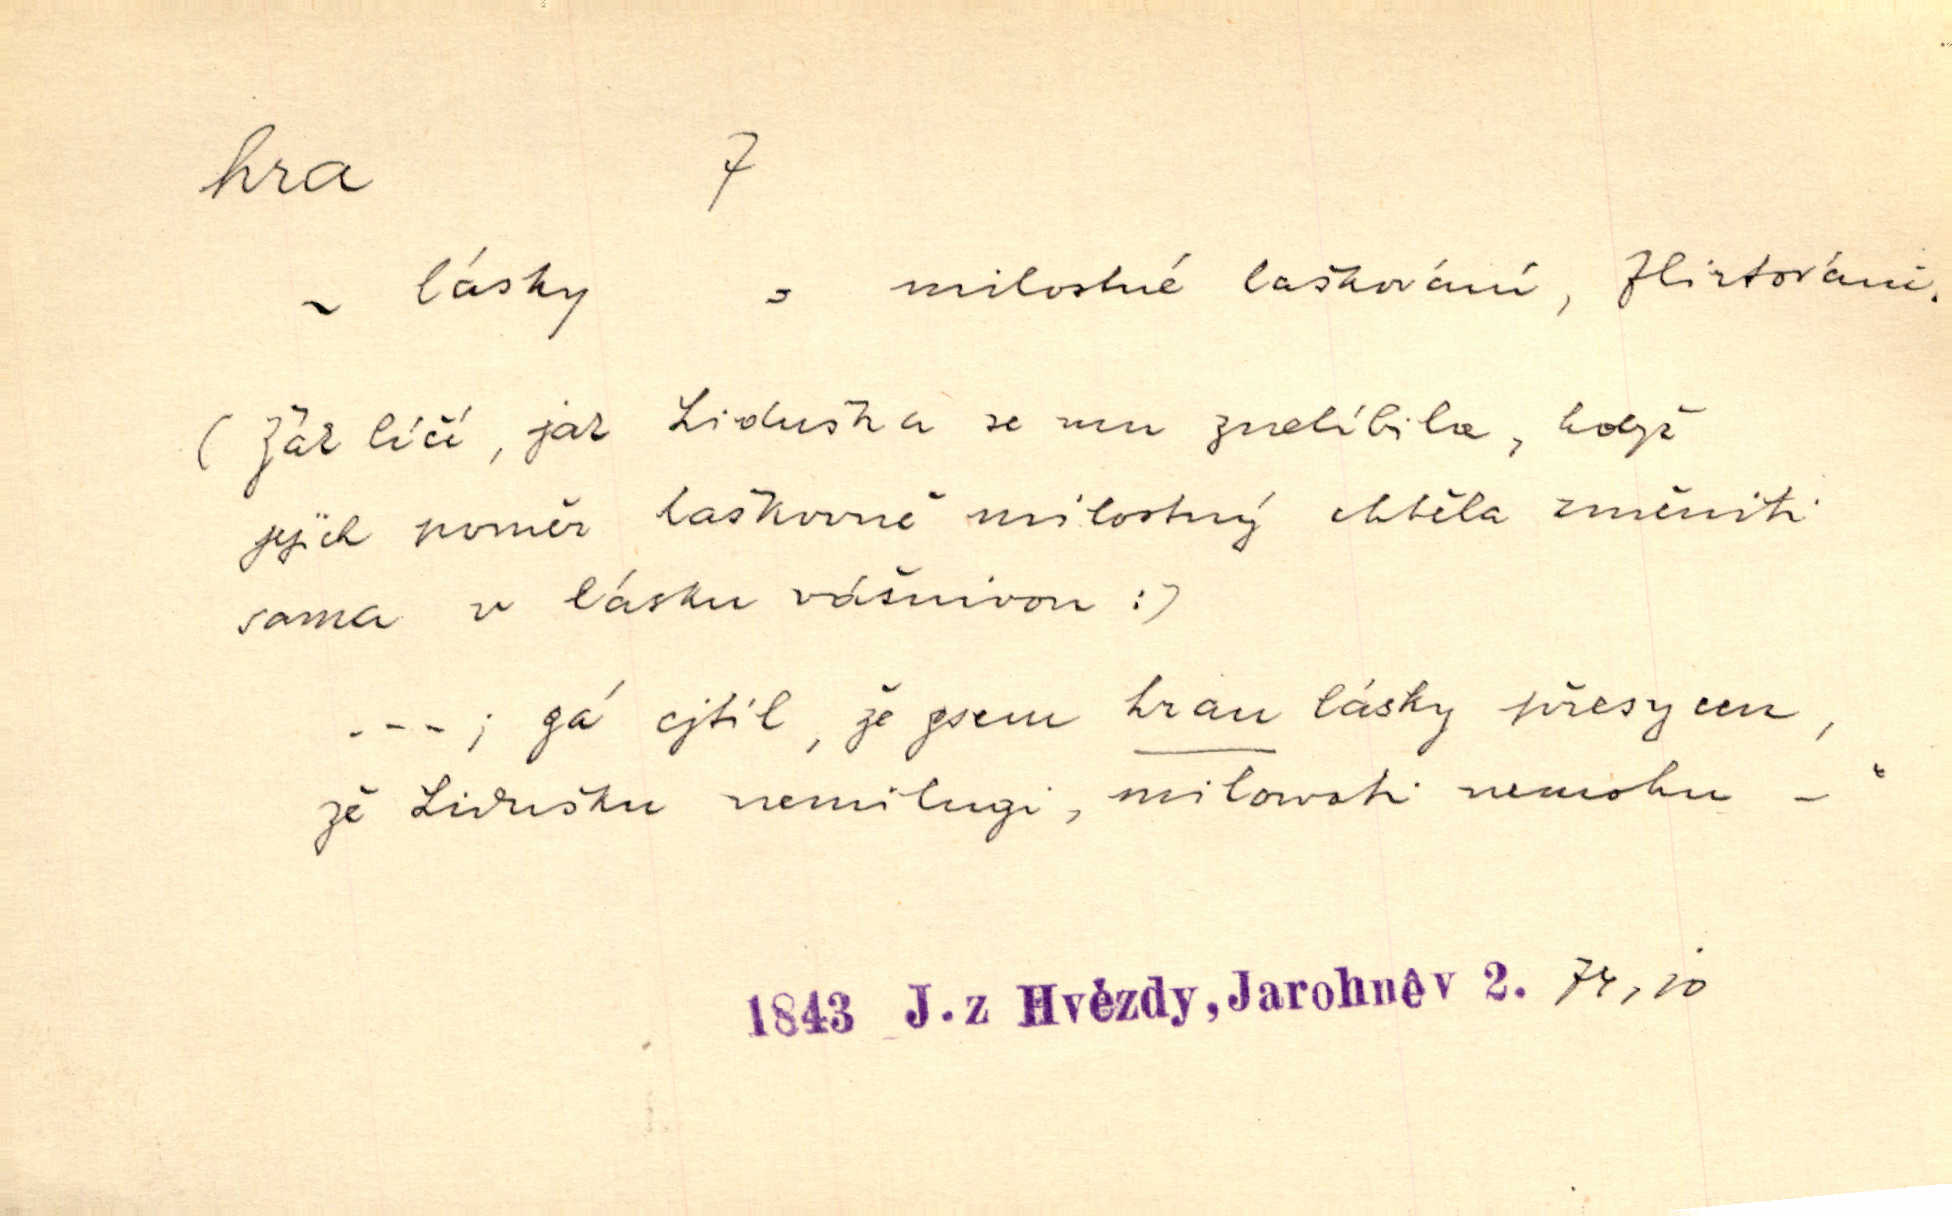 hra 7
~ lásky = milostné laškování, flirtování.
(Žák líčí, jak Liduška se mu znelíbila, když
jejich poměr laškovně milostný chtěla změniti
sama v lásku vášnivou:)
---; gá cjtil, že gsem hrau lásky přesycen,
že Lidušku nemilugi, milowati nemohu – "
1843 J. z Hvězdy, Jarohněv 2.